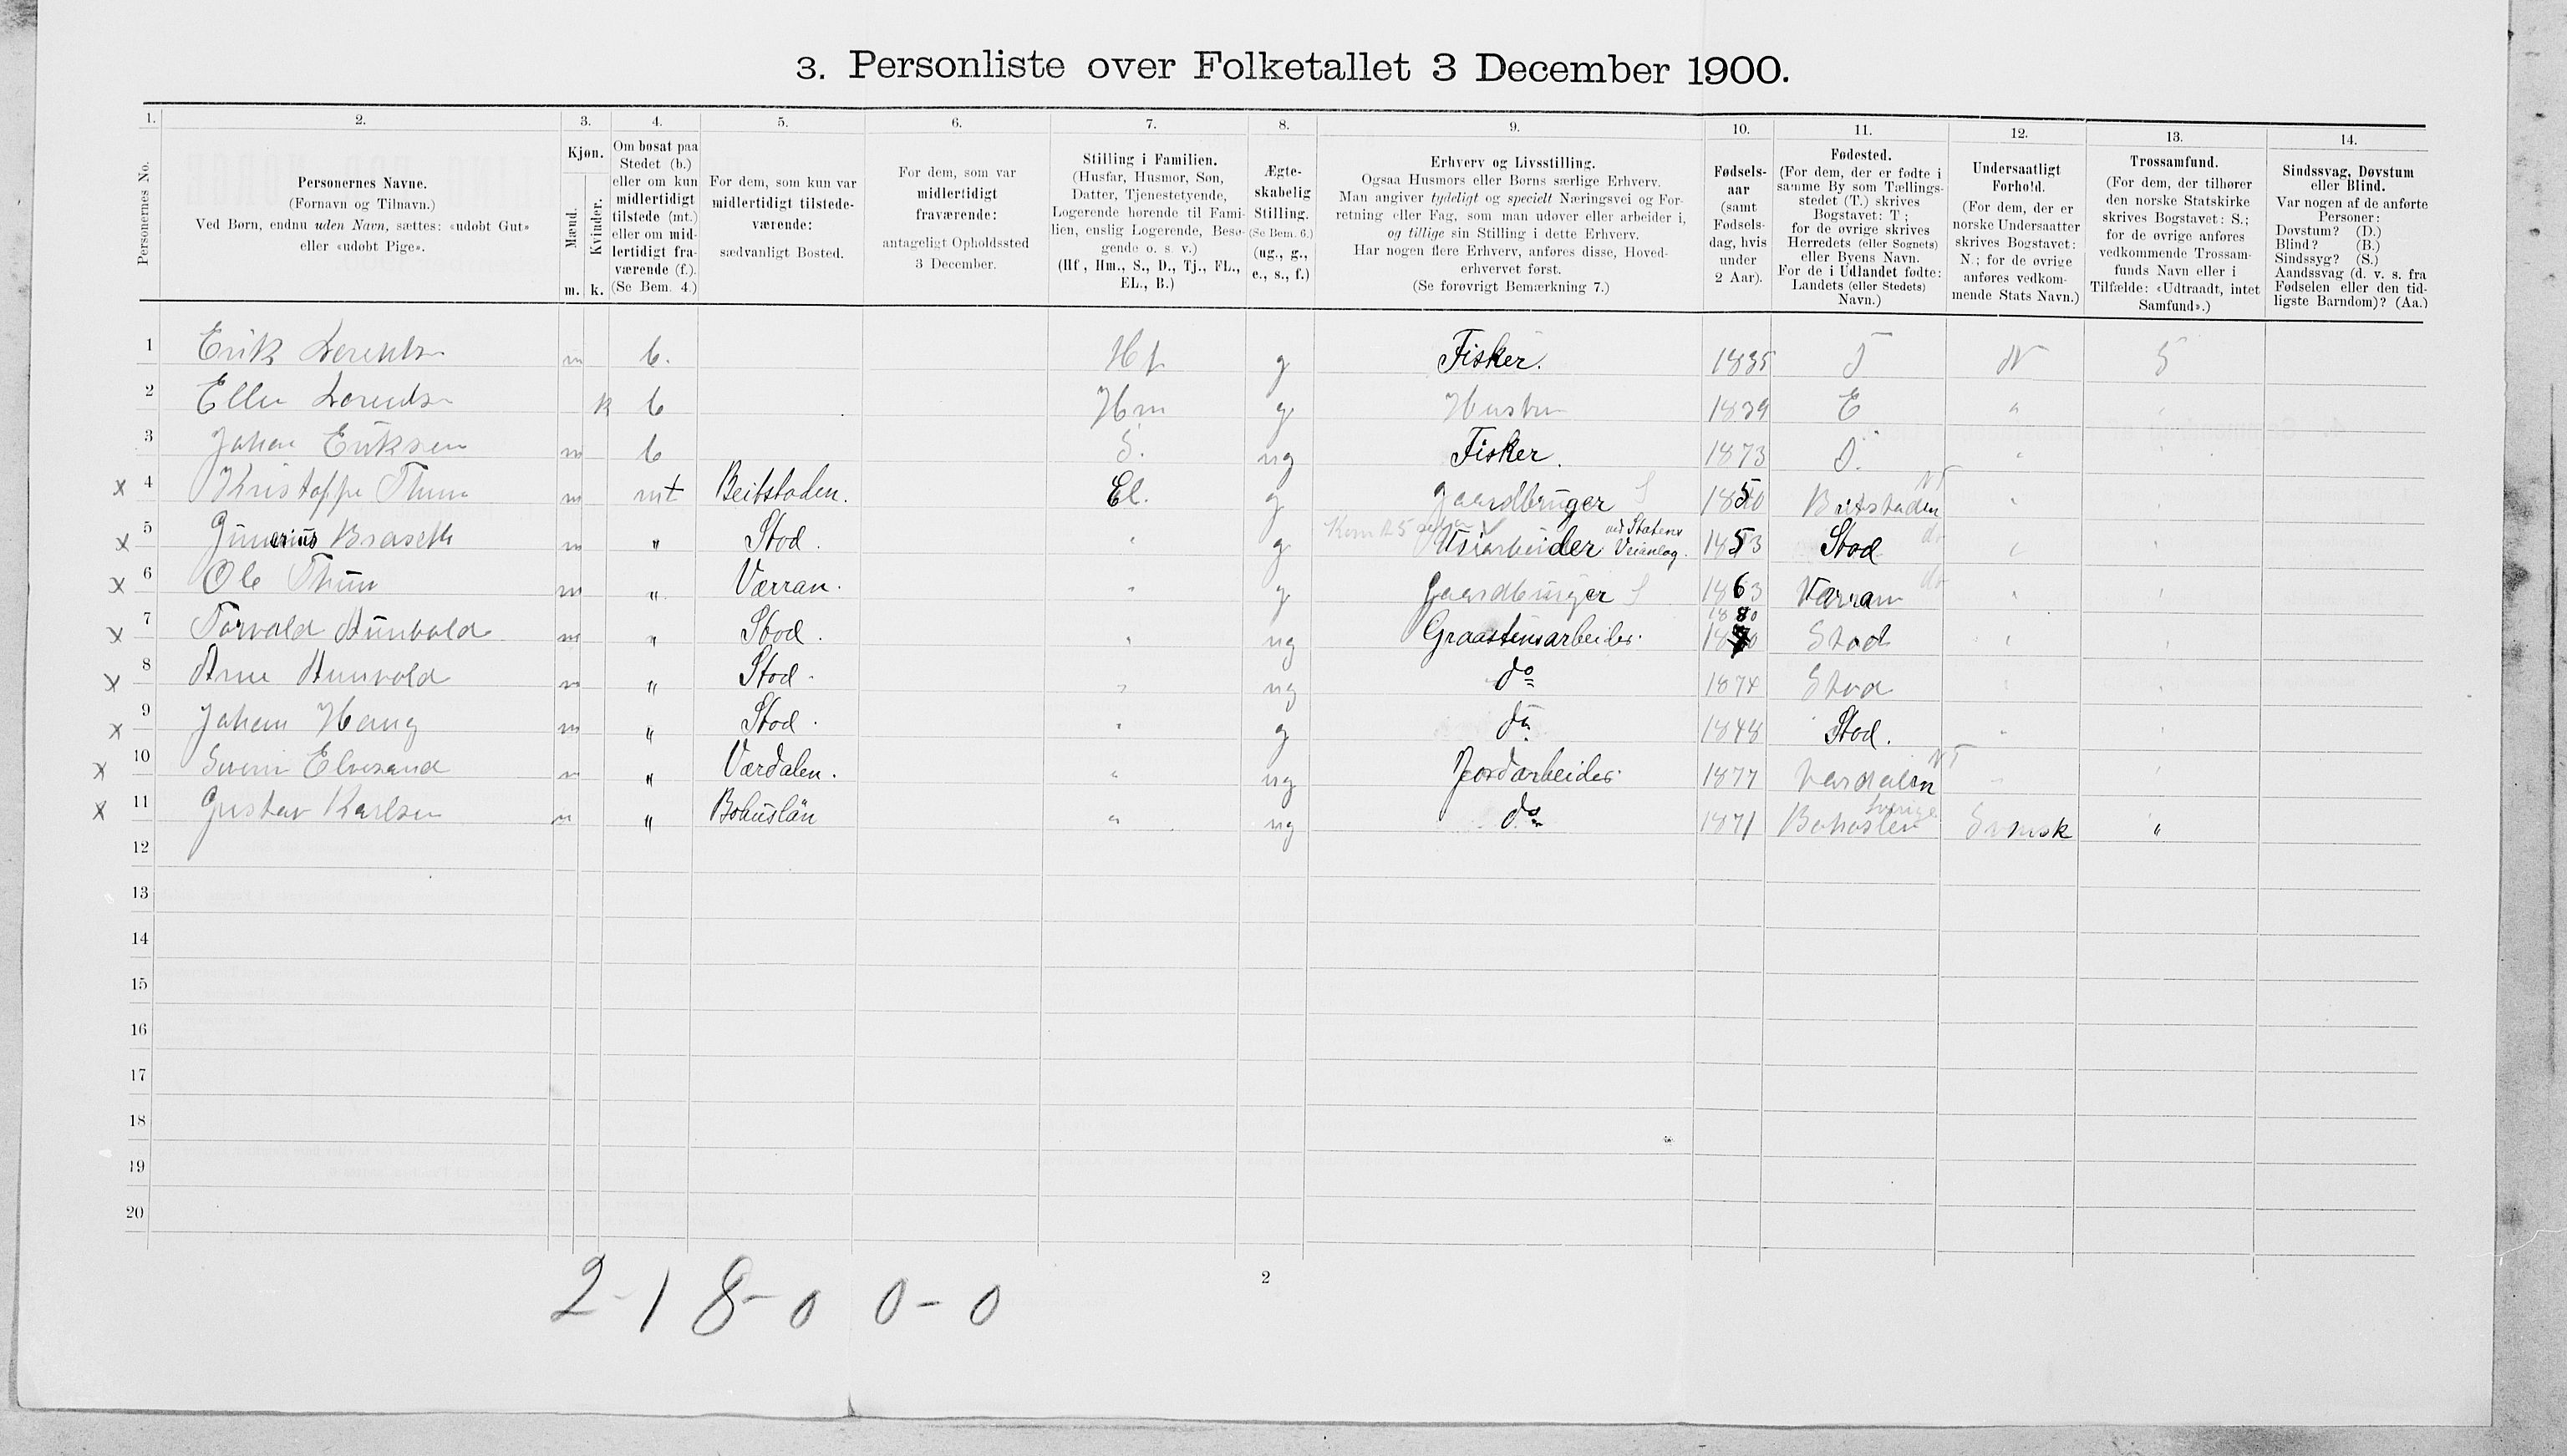 3. Personliste over Folketallet 3 December 1900.
1. 2. 3. 4. 5. 6. 7. 8. 9. 10. 11. 12. 13. 14.
Personernes No.
Personernes Navne.
(Fornavn og Tilnavn.)
Ved Børn, endnu uden Navn, sættes: «udøbt Gut»
eller «udøbt Pige».
Kjøn.
Mænd. Kvinder.
m. k.
Om bosat paa
Stedet (b.)
eller om kun
midlertidigt
tilstede (mt.)
eller om mid-
lertidigt fra-
værende (f.).
(Se Bem. 4.)
For dem, som kun var
midlertidigt tilstede-
værende:
sædvanligt Bosted.
For dem, som var
midlertidigt
fraværende:
antageligt Opholdssted
3 December.
Stilling i Familien.
(Husfar, Husmor, Søn,
Datter, Tjenestetyende,
Logerende hørende til Fami-
lien, enslig Logerende, Besø-
gende o. s. v.)
(Hf, Hm., S., D., Tj., FL.,
EL., B.)
Ægte-
skabelig
Stilling.
(Se Bem. 6.)
(ug., g.,
e., s., f.)
Erhverv og Livsstilling.
Ogsaa Husmors eller Børns særlige Erhverv.
Man angiver tydeligt og specielt Næringsvei og For-
retning eller Fag, som man udøver eller arbeider i,
og tillige sin Stilling i dette Erhverv.
Har nogen flere Erhverv, anføres disse, Hoved-
erhvervet først.
(Se forøvrigt Bemærkning 7.)
Fødsels-
aar
(samt
Fødsels-
dag, hvis
under
2 Aar).
Fødested.
(For dem, der er fødte i
samme By som Tællings-
stedet (T.) skrives
Bogstavet: T;
for de øvrige skrives
Herredets (eller Sognets)
eller Byens Navn.
For de i Udlandet fødte:
Landets (eller Stedets)
Navn.)
Undersaatligt
Forhold.
(For dem, der er
norske Undersaatter
skrives Bogstavet:
N.; for de øvrige
anføres vedkom-
mende Stats Navn.)
Trossamfund.
(For dem, der tilhører
den norske Statskirke
skrives Bogstavet: S.;
for de øvrige anføres
vedkommende Trossam-
funds Navn eller i
Tilfælde: «Udtraadt, intet
Samfund».)
Sindssvag, Døvstum
eller Blind.
Var nogen af de anførte
Personer:
Døvstum? (D.)
Blind? (B.)
Sindssyg? (S.)
Aandssvag (d. v. s. fra
Fødselen eller den tid-
ligste Barndom)? (Aa.)
1 Erik m b. Hf g Fisker. 1835 N S
2 k b Hm g 1839 "
3 Johan Eriksen m b S. ug Fisker. 1873 "
x 4 m mt Beitstaden. El. g Gaardbruger S 1850 Beitstaden NT "
x 5 m " Stod. " g ved Statens Veianlæg. 1853 Stod do "
x 6 Ole Thun m " Værran. " g Gaardbruger S 1863 Værran do "
x 7 m " Stod. " ug Graastensarbeider. 1880 Stod "
x 8 m " Stod. " ug do 1874 Stod "
x 9 Johan Haug m " Stod. " g do 1848 Stod. "
x 10 m " Værdalen. " ug Jordarbeider. 1877 Værdalen NT "
x 11 Gustav Karlsen m " Bohuslän " ug do 1871 Bohuslen Sverige Svensk "
12
13
14
15
16
17
18
19
20
2-1 8-0 0-0
2